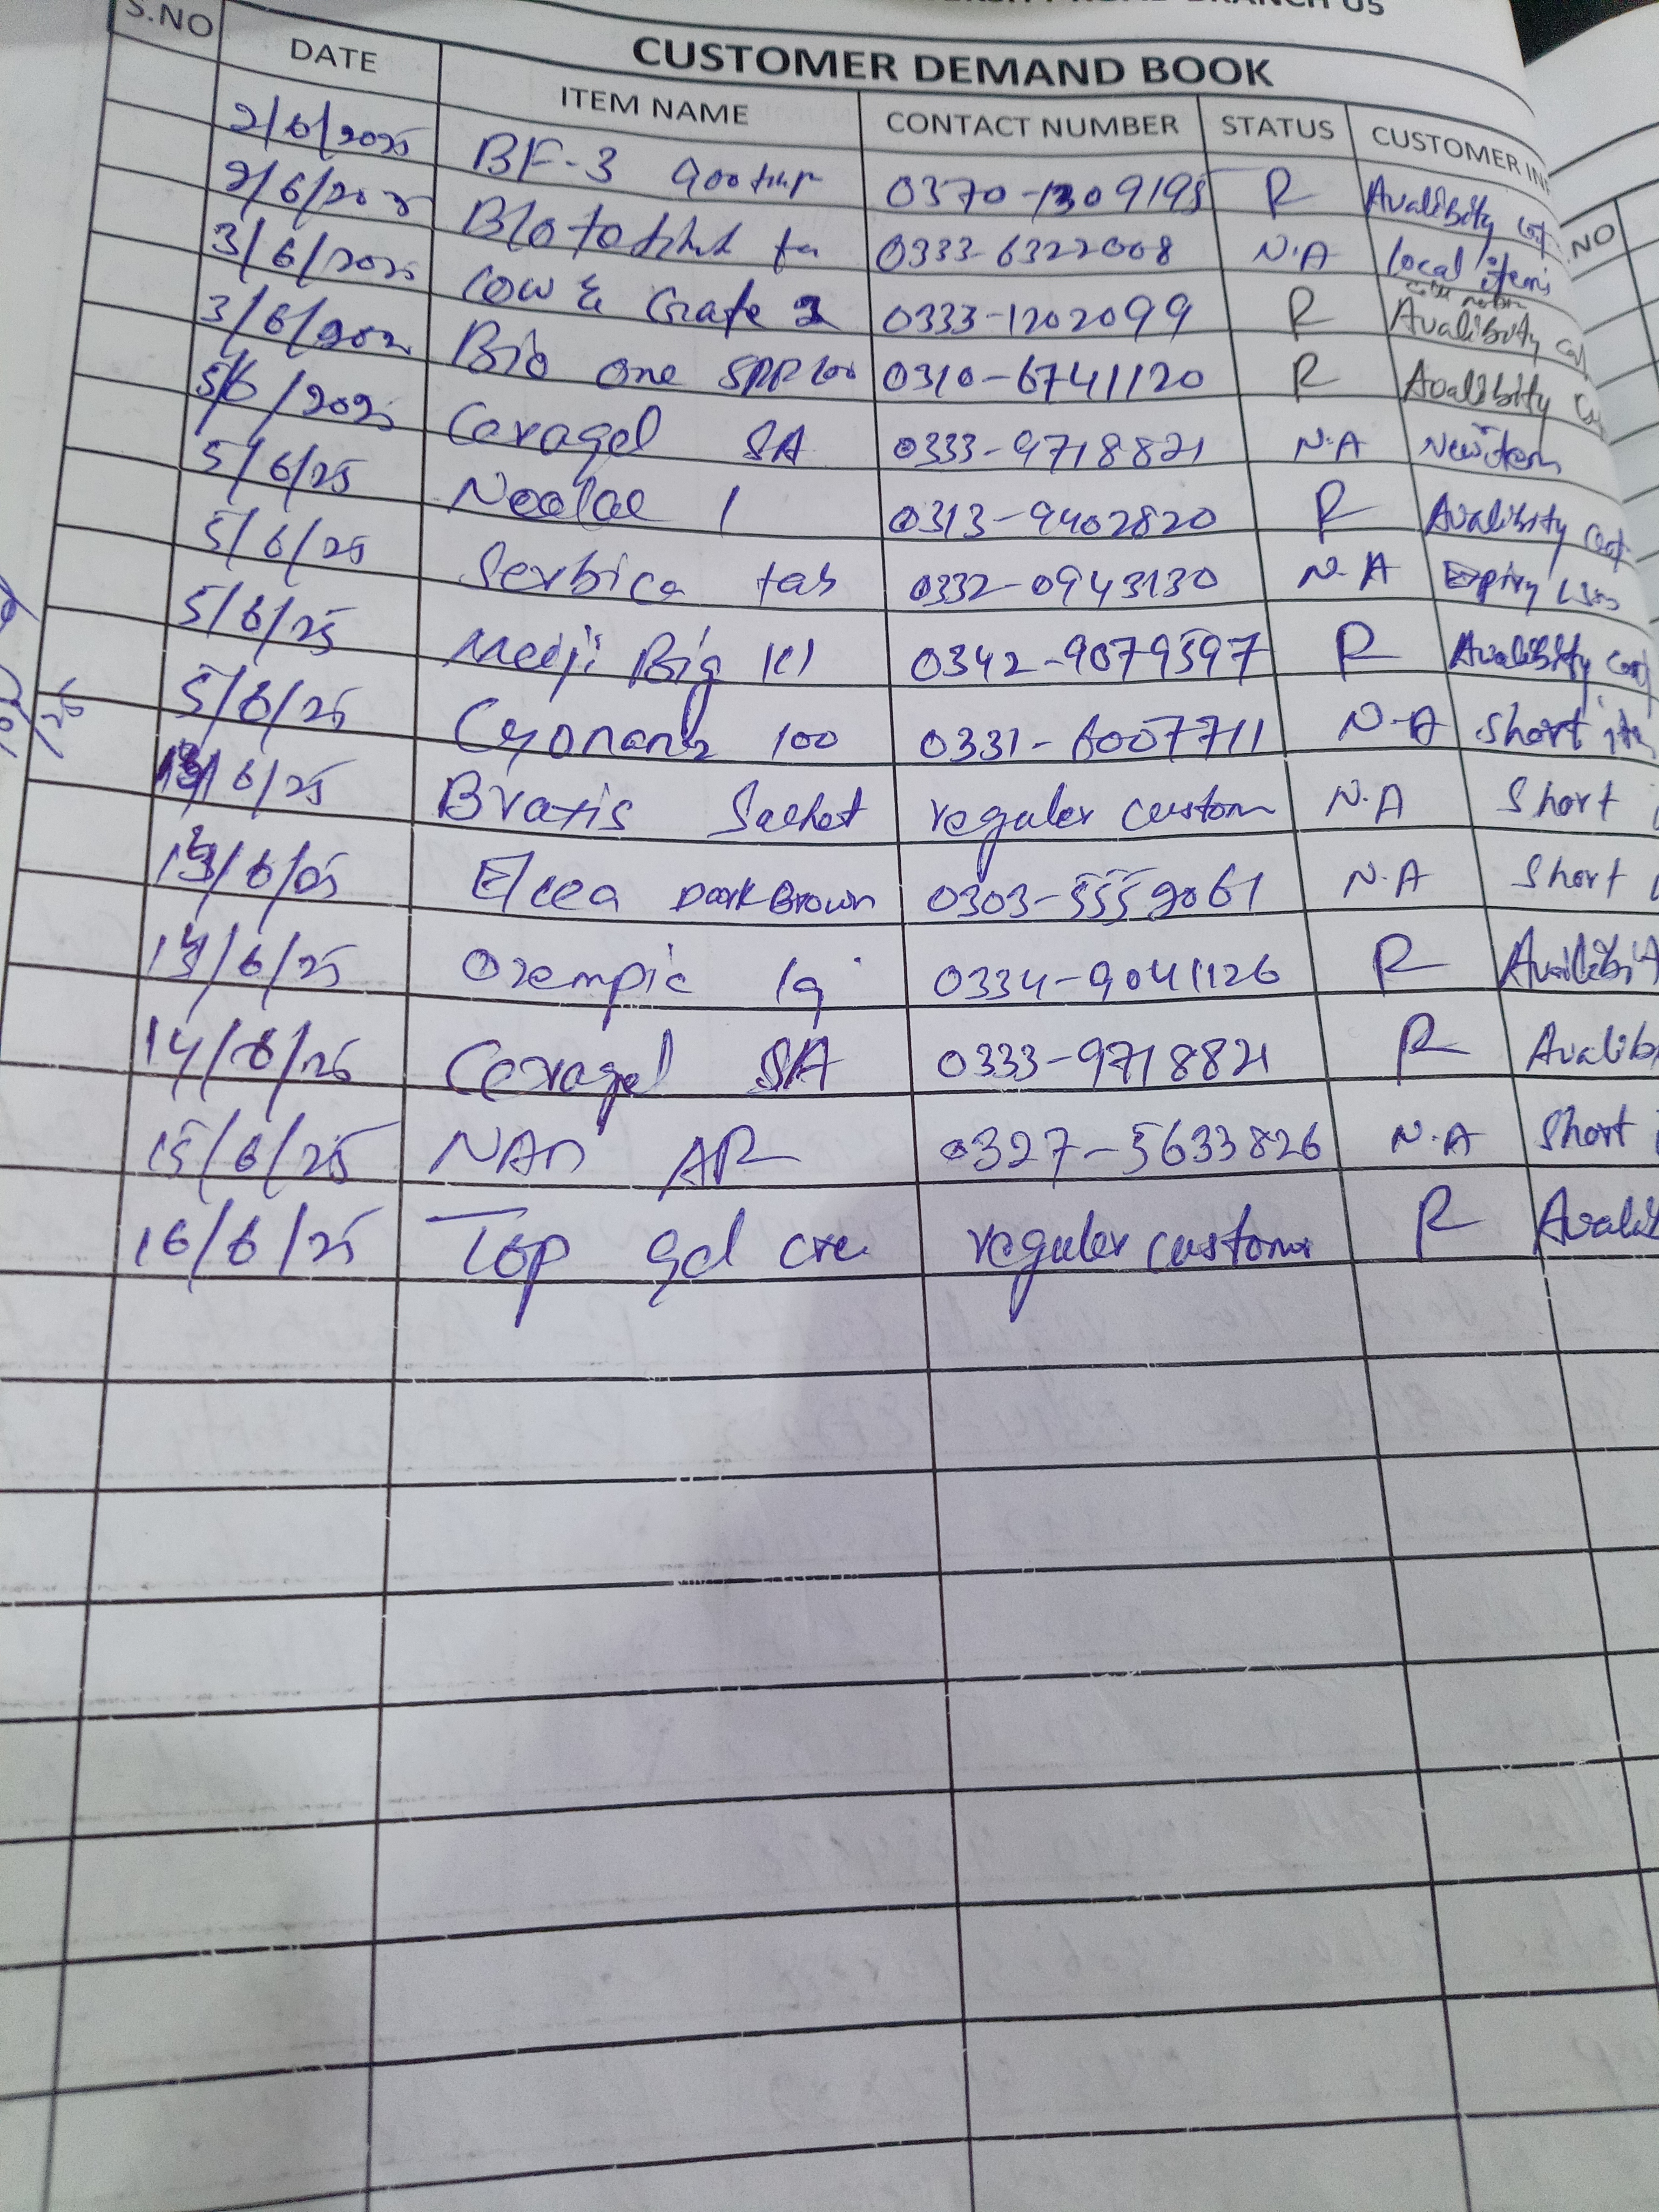 BRANCH 05
CUSTOMER DEMAND BOOK
S.NO DATE ITEM NAME CONTACT NUMBER STATUS CUSTOMER IN
2/6/2025 BF-3 900 0370-1309195 R Avalibity
2/6/2025 0333-6322008 N.A local items
3/6/2025 Cow & Grate 2 0333-1202099 R Avalibity
3/6/202 Bio one 0310-6741120 R Avalibity
5/6/2025 Cexagel SA 0333-9718821 N.A New item
5/6/25 1 0313-9402820 R Avalibity
5/6/25 Serbica tab 0332-0943130 N.A Expiry
5/6/25 Meiji Big 0342-9079597 R Avalibity
5/6/25 100 0331-6007711 N.A Short
/6/25 Sachet reguler custom N.A Short
Elcea Dark Brown 0303-5559061 N.A Short
/6/25 Ozempic 0334-9041126 R Avalibi
14/6/25 Cexagel SA 0333-9718821 R Avalib
15/6/25 NAN AR 0327-5633826 N.A Short
16/6/25 Top gel cre reguler custom R Avalib
NO